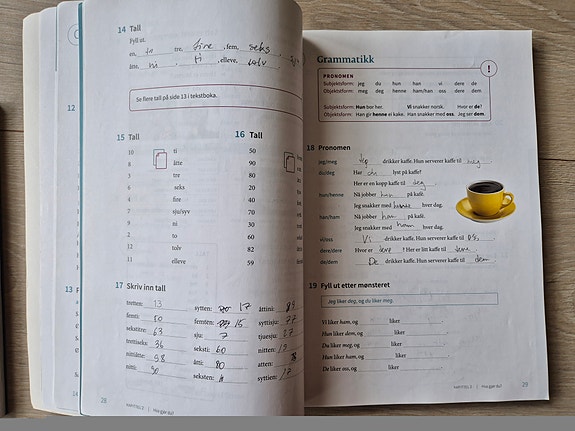 14 Tall
Fyll ut.
en, to tre, fire, fem, seks
åtte, ni, ti, elleve, tolv
Se flere tall på side 13 i tekstboka.
12
13 F
15 Tall
10 ti
8 åtte
3 tre
6 seks
4 fire
7 sju/syv
9 ni
2 to
12 tolv
11 elleve
16 Tall
50
90
80
20
40
70
30
60
82
59
17 Skriv inn tall
tretten: 13 sytten: 17 åttini: 89
femti: 50 femten: 15 syttisju: 77
sekstitre: 63 sju: 7 tjuesju: 27
trettiseks: 36 seksti: 60 nitten: 19
nittiåtte: 98 åtti: 80 atten:
nitti: 90 seksten: syttien:
28 KAPITTEL 2 | Hva gjør du?
Grammatikk
!
PRONOMEN
Subjektsform: jeg du hun han vi dere de
Objektsform: meg deg henne ham/han oss dere dem
Subjektsform: Hun bor her. Vi snakker norsk. Hvor er de?
Objektsform: Han gir henne ei kake. Han snakker med oss. Jeg ser dem.
18 Pronomen
jeg/meg Jeg drikker kaffe. Hun serverer kaffe til meg.
du/deg Har du lyst på kaffe?
Her er en kopp kaffe til deg.
hun/henne Nå jobber hun på kafé.
Jeg snakker med henne hver dag.
han/ham Nå jobber han på kafé.
Jeg snakker med ham hver dag.
vi/oss Vi drikker kaffe. Hun serverer kaffe til oss.
dere/dere Hvor er dere? Her er litt kaffe til dere.
de/dem De drikker kaffe. Hun serverer kaffe til dem.
19 Fyll ut etter mønsteret
Jeg liker deg, og du liker meg.
Vi liker ham, og liker .
Hun liker dem, og liker .
Du liker meg, og liker .
Hun liker ham, og liker .
De liker oss, og liker .
KAPITTEL 2 | Hva gjør du? 29